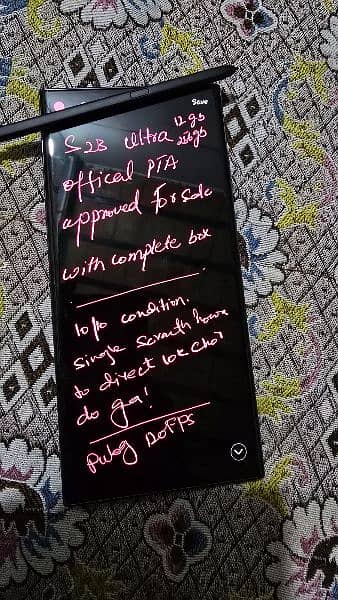 Save
S23 ultra 12gb
256gb
offical PTA
approved For Sale
with complete box
10/10 condition.
single scratch howa
to direct 10k chor
do ga!
pubg 120FPS